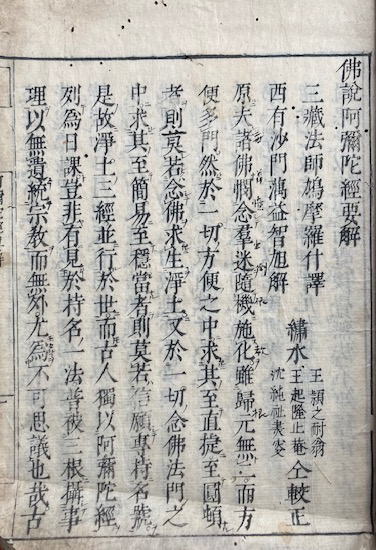 佛說阿彌陀經要解
三藏法師鳩摩羅什譯
西有沙門蕅益智旭解
繡水
王頴之耐翁
王起隆止菴
沈純祉
仝較正
原夫諸佛憫念羣迷隨機施化雖歸元無二而方
便多門然於一切方便之中求其至直捷至圓頓
者則莫若念佛求生淨土又於一切念佛法門之
中求其至簡易至穩當者則莫若信願專持名號
是故淨土三經並行於世而古人獨以阿彌陀經
列為日課豈非有見於持名一法普被三根攝事
理以無遺統宗教而無外尤為不可思議也哉古